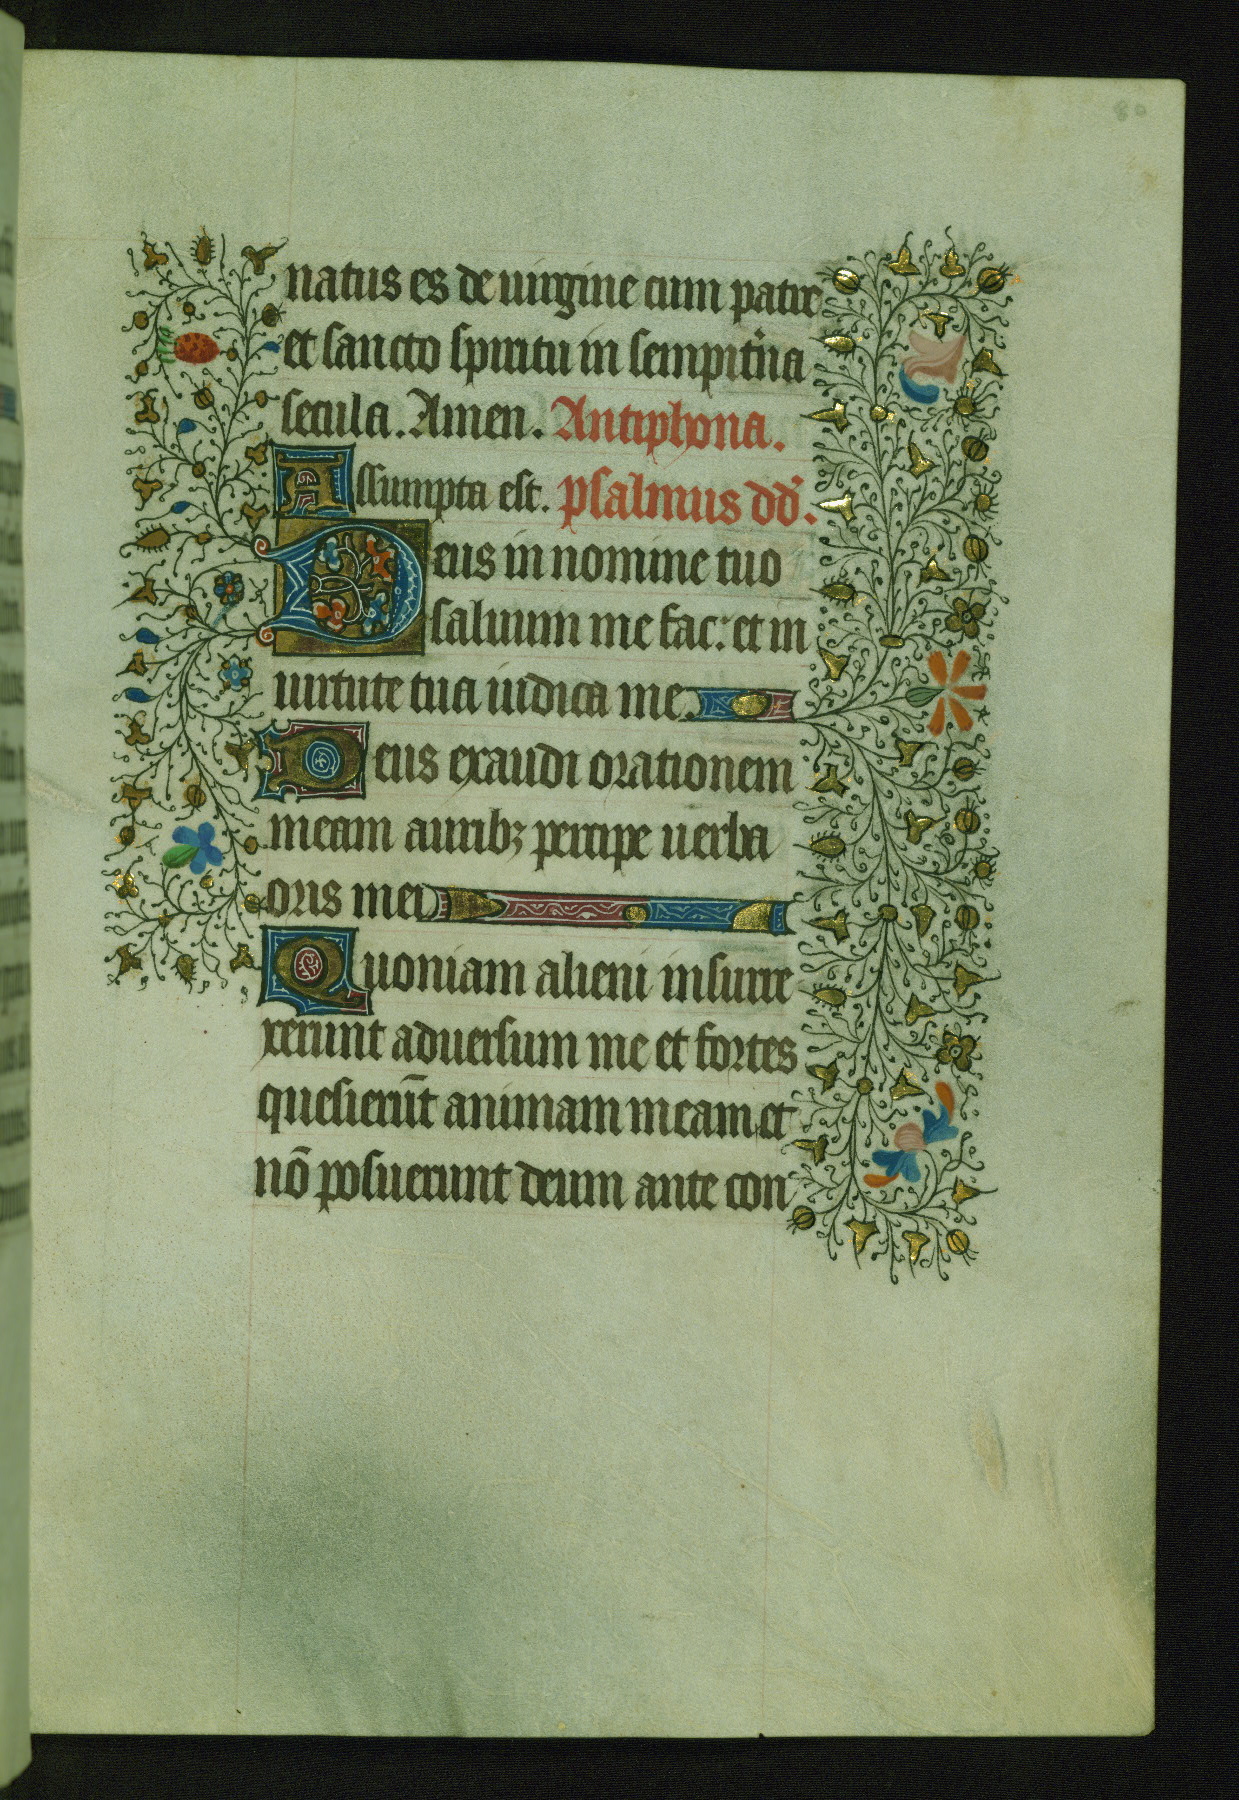 80
natus es de uirgine cum patre
et sancto spiritu in sempit'na
secula. Amen. Antiphona.
Assumpta est. psalmus dd'.
Deus in nomine tuo
saluum me fac: et in
uirtute tua iudica me.
Deus exaudi orationem
meam auribꝫ percipe uerba
oris mei
Quoniam alieni insurre
xerunt aduersum me et fortes
quesierūt animam meam et
nō posuerunt deum ante con